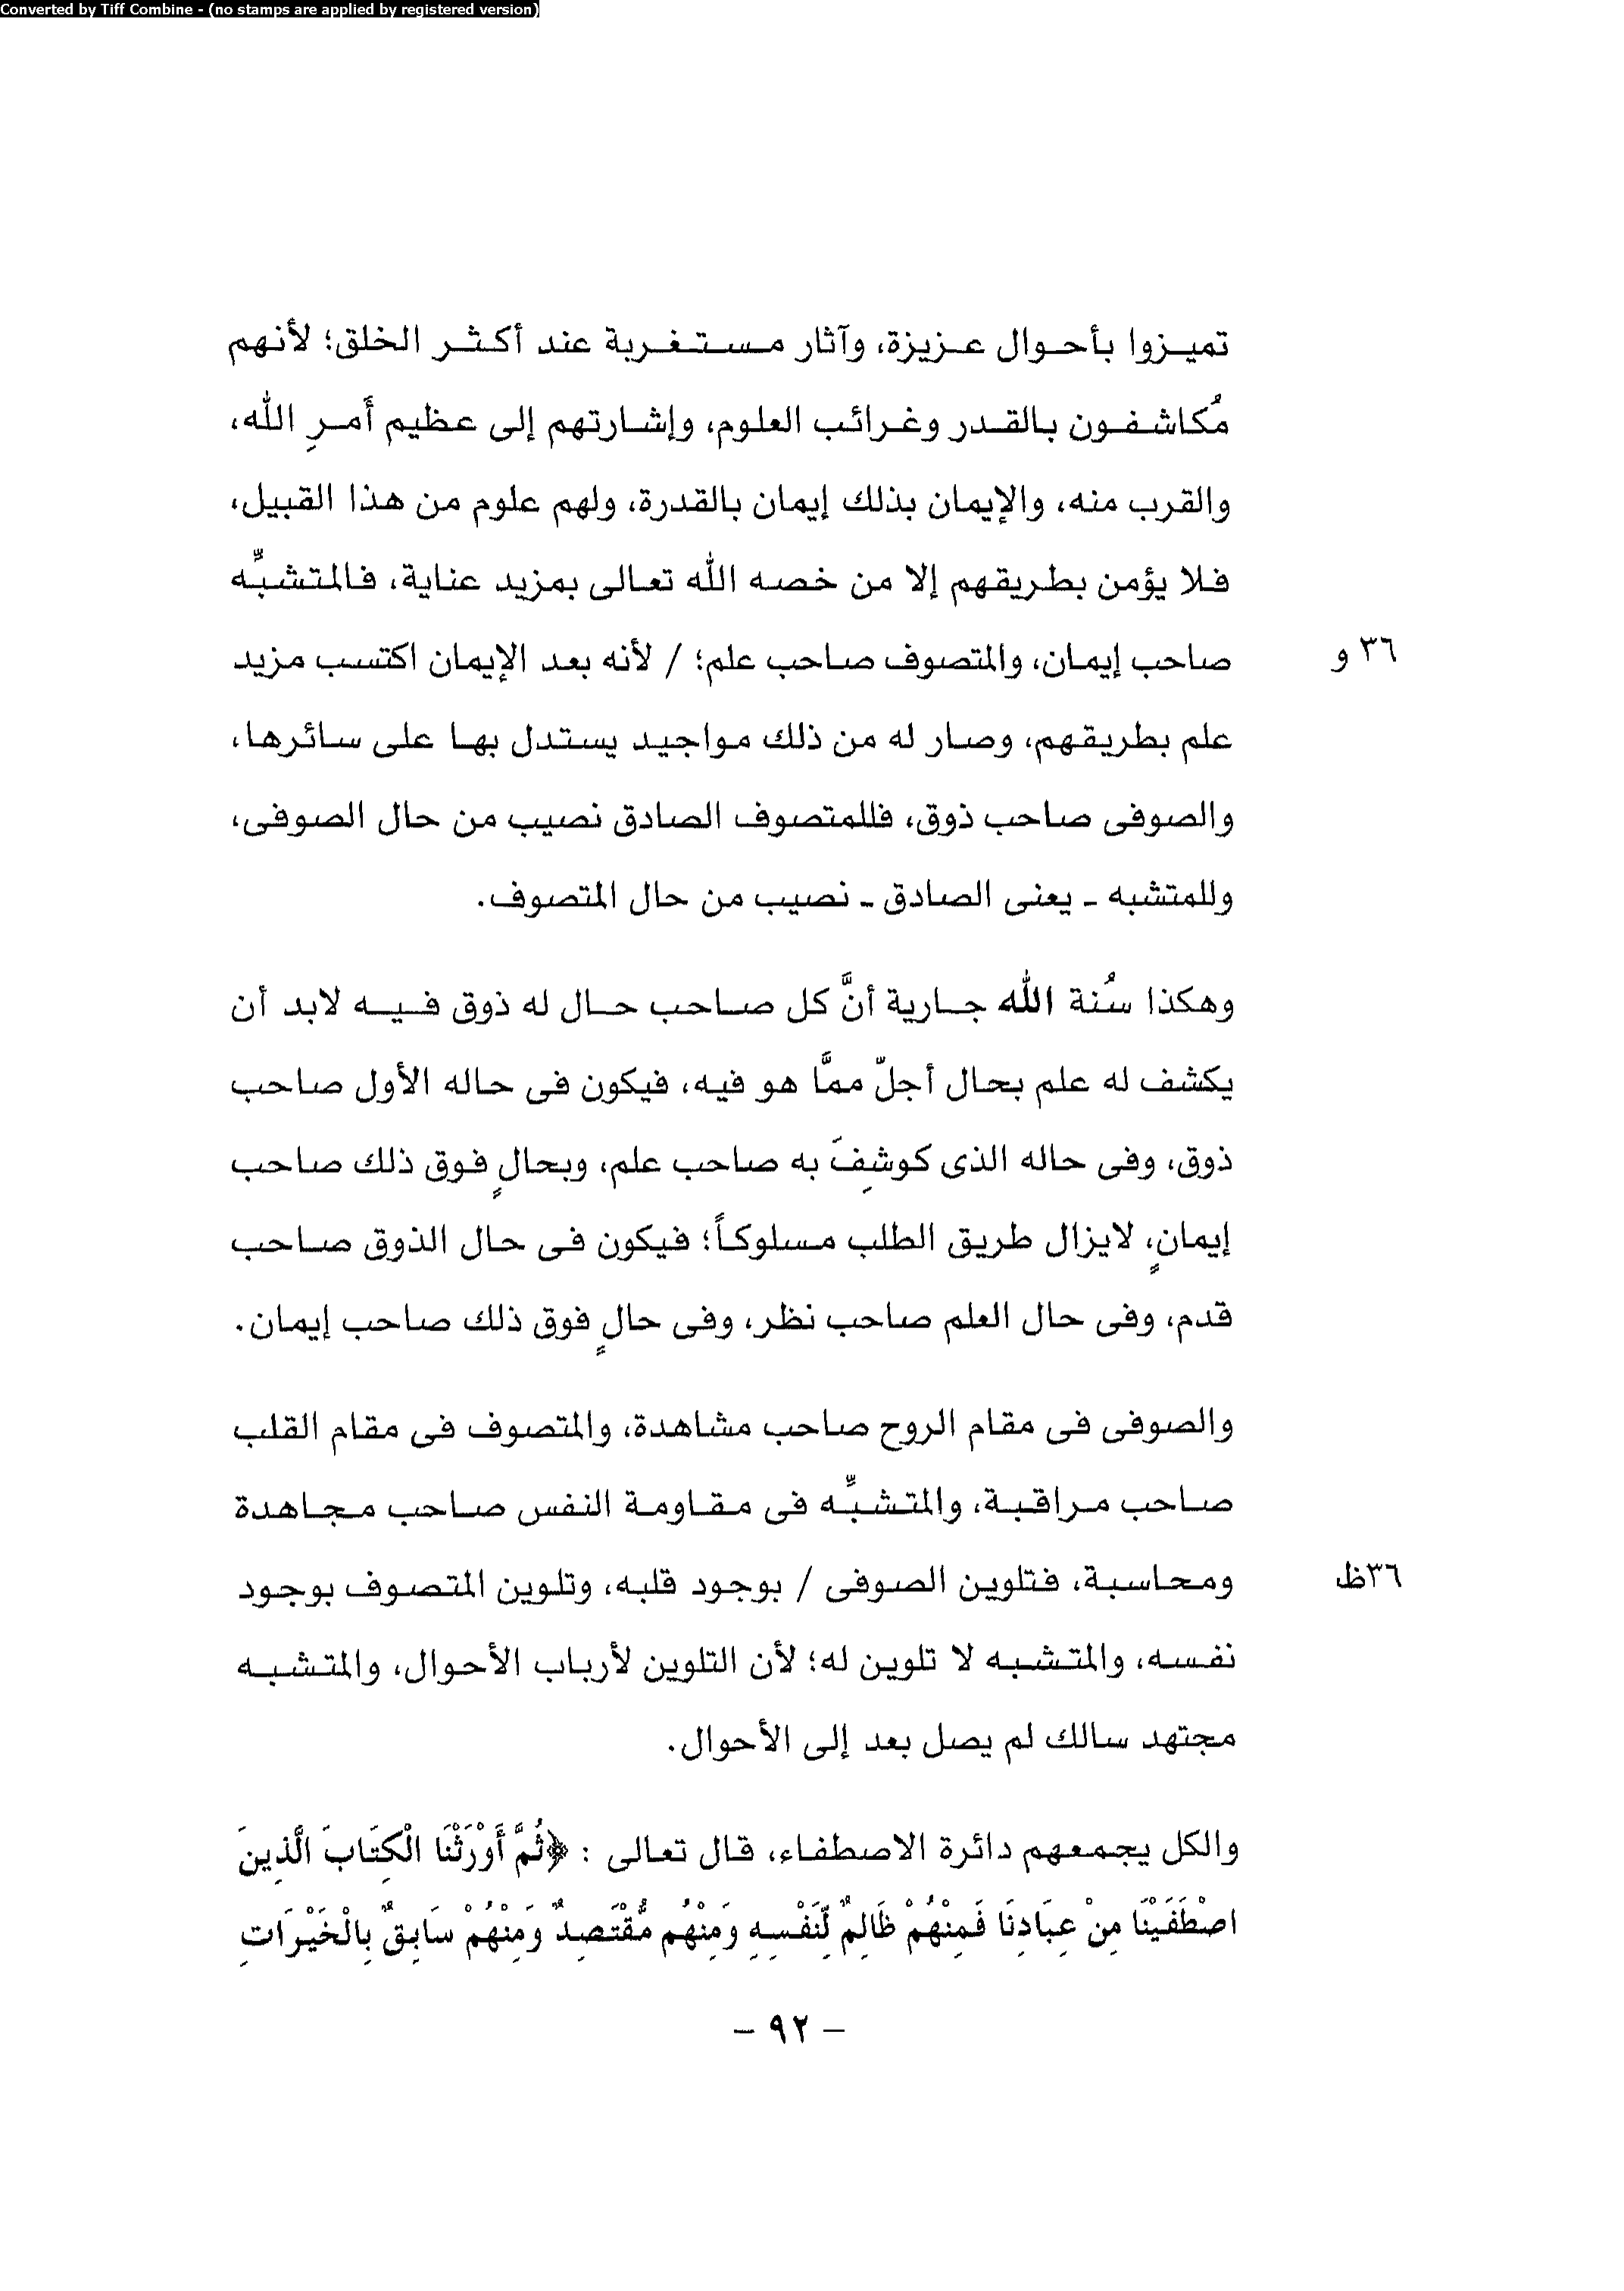 Converted by Tiff Combine - (no stamps are applied by registered version)
تميزوا بأحوال عزيزة، وآثار مستغربة عند أكثر الخلق؛ لأنهم
مُكاشفون بالقدر وغرائب العلوم، وإشارتهم إلى عظيم أَمرِ الله،
والقرب منه، والإيمان بذلك إيمان بالقدرة، ولهم علوم من هذا القبيل،
فلا يؤمن بطريقهم إلا من خصه الله تعالى بمزيد عناية، فالمتشبِّه
صاحب إيمان، والمتصوف صاحب علم؛ / لأنه بعد الإيمان اكتسب مزيد
٣٦ و
علم بطريقهم، وصار له من ذلك مواجيد يستدل بها على سائرها،
والصوفى صاحب ذوق، فللمتصوف الصادق نصيب من حال الصوفى،
وللمتشبه ـ يعنى الصادق ـ نصيب من حال المتصوف.
وهكذا سُنة الله جارية أنَّ كل صاحب حال له ذوق فيه لابد أن
يكشف له علم بحال أجلّ ممَّا هو فيه، فيكون فى حاله الأول صاحب
ذوق، وفى حاله الذى كوشِفَ به صاحب علم، وبحالٍ فوق ذلك صاحب
إيمانٍ، لايزال طريق الطلب مسلوكاً؛ فيكون فى حال الذوق صاحب
قدم، وفى حال العلم صاحب نظر، وفى حالٍ فوق ذلك صاحب إيمان.
والصوفى فى مقام الروح صاحب مشاهدة، والمتصوف فى مقام القلب
صاحب مراقبة، والمتشبِّه فى مقاومة النفس صاحب مجاهدة
ومحاسبة، فتلوين الصوفى / بوجود قلبه، وتلوين المتصوف بوجود
٣٦ظ
نفسه، والمتشبه لا تلوين له؛ لأن التلوين لأرباب الأحوال، والمتشبه
مجتهد سالك لم يصل بعد إلى الأحوال.
والكل يجمعهم دائرة الاصطفاء، قال تعالى : ﴿ثُمَّ أَوْرَثْنَا الْكِتَابَ الَّذِينَ
اصْطَفَيْنَا مِنْ عِبَادِنَا فَمِنْهُمْ ظَالِمٌ لِّنَفْسِهِ وَمِنْهُم مُّقْتَصِدٌ وَمِنْهُمْ سَابِقٌ بِالْخَيْرَاتِ
– ٩٢ –